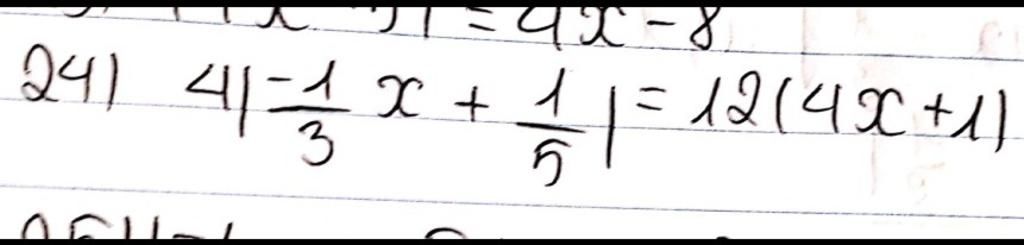 = 4x - 8
24) 4|-1/3 x + 1/5| = 12(4x+1)